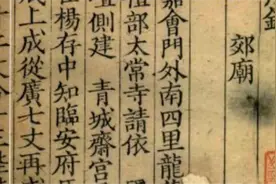 郊廟
嘉會門外南四里龍
部太常寺請依
壇側建 青城齋宮
楊存中知臨安府
上成從廣七丈再成